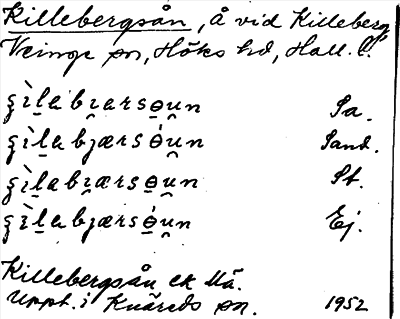 Killebergsån, å vid Killeberg,
Veinge sn, Höks hd, Hall. l.
ʂìl̠abi̯arsɵu̯n Sa.
ʂìl̠abjærsɵ́u̯n Sand.
ʂìl̠abi̯ærsɵu̯n St.
ʂìl̠abjærsɵ́u̯n Ej.
Killebergsån ek Mä.
Uppt. i Knäreds sn. 1952